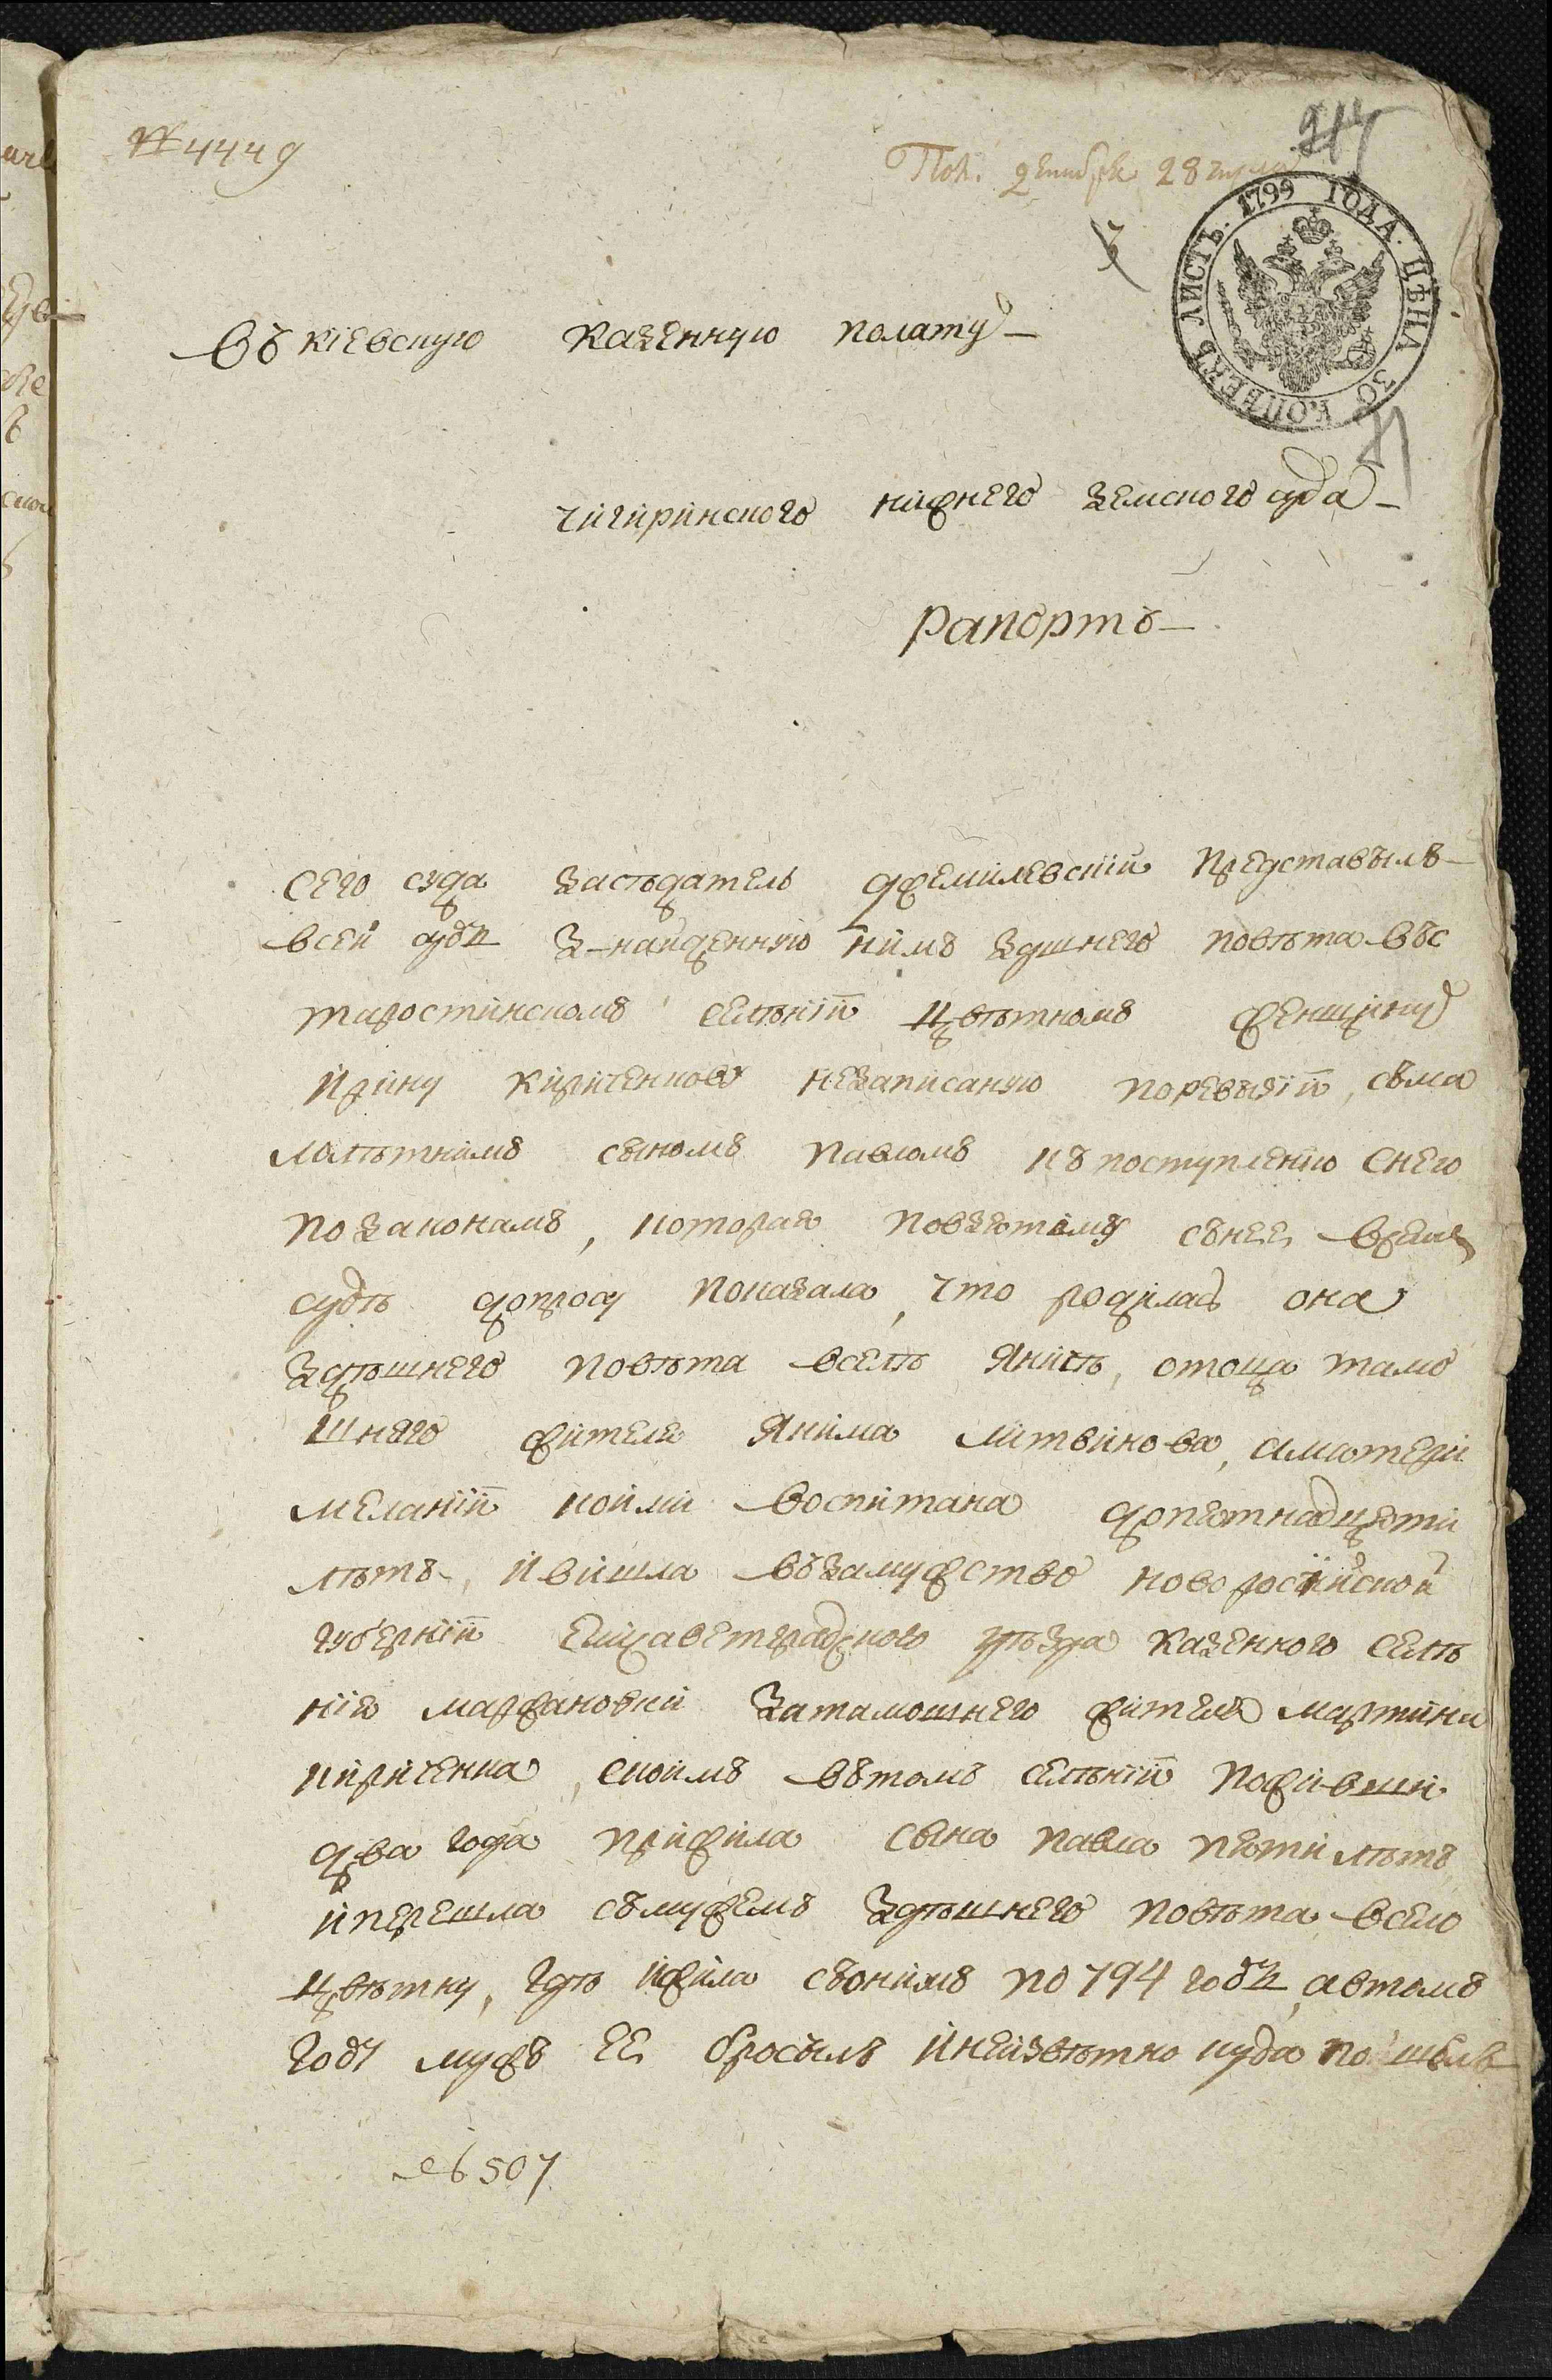 № 4449
Пол: декабря 28
1799 ГОДА. ЦѢНА 30 КОПѢЕКЪ ЛИСТЪ.
Въ кіевскую казенную полату
чигиринского нижнего земского суда
Рапортъ
сего суда засѣдатель Джемилевскій представылъ
всей судъ знайденную нимъ здшнего повѣта въс
таростинскомъ селѣнїи цвѣтномъ женщину
ирину кириченкову незаписаную поревызїи, съма
лолѣтнимъ сыномъ павломъ къ поступленію снего
позаконамъ, которая повзятому сънее время
судѣ допросу показала, что родилась она
здѣшнего повѣта вселѣ Яничѣ, отоца тамо
шняго жителя Якима литвинова, аматери
меланїи коими воспитана допятнадцяти
лѣтъ, ивишла възамужство новоросійской
губернїи Елисаветградского уѣзда казенного селѣ
нія маржановки затамошнего жителя мартина
кириченка, скоимъ вътомъ селѣнїи поживши
два года прижила сына павла пяти лѣтъ
иперешла съмужемъ здѣшнего повѣта всело
цвѣтну, гдѣ ижила съонимъ по 794 годъ, автомъ
году мужъ ее бросылъ инеизвѣтно куда пошолъ